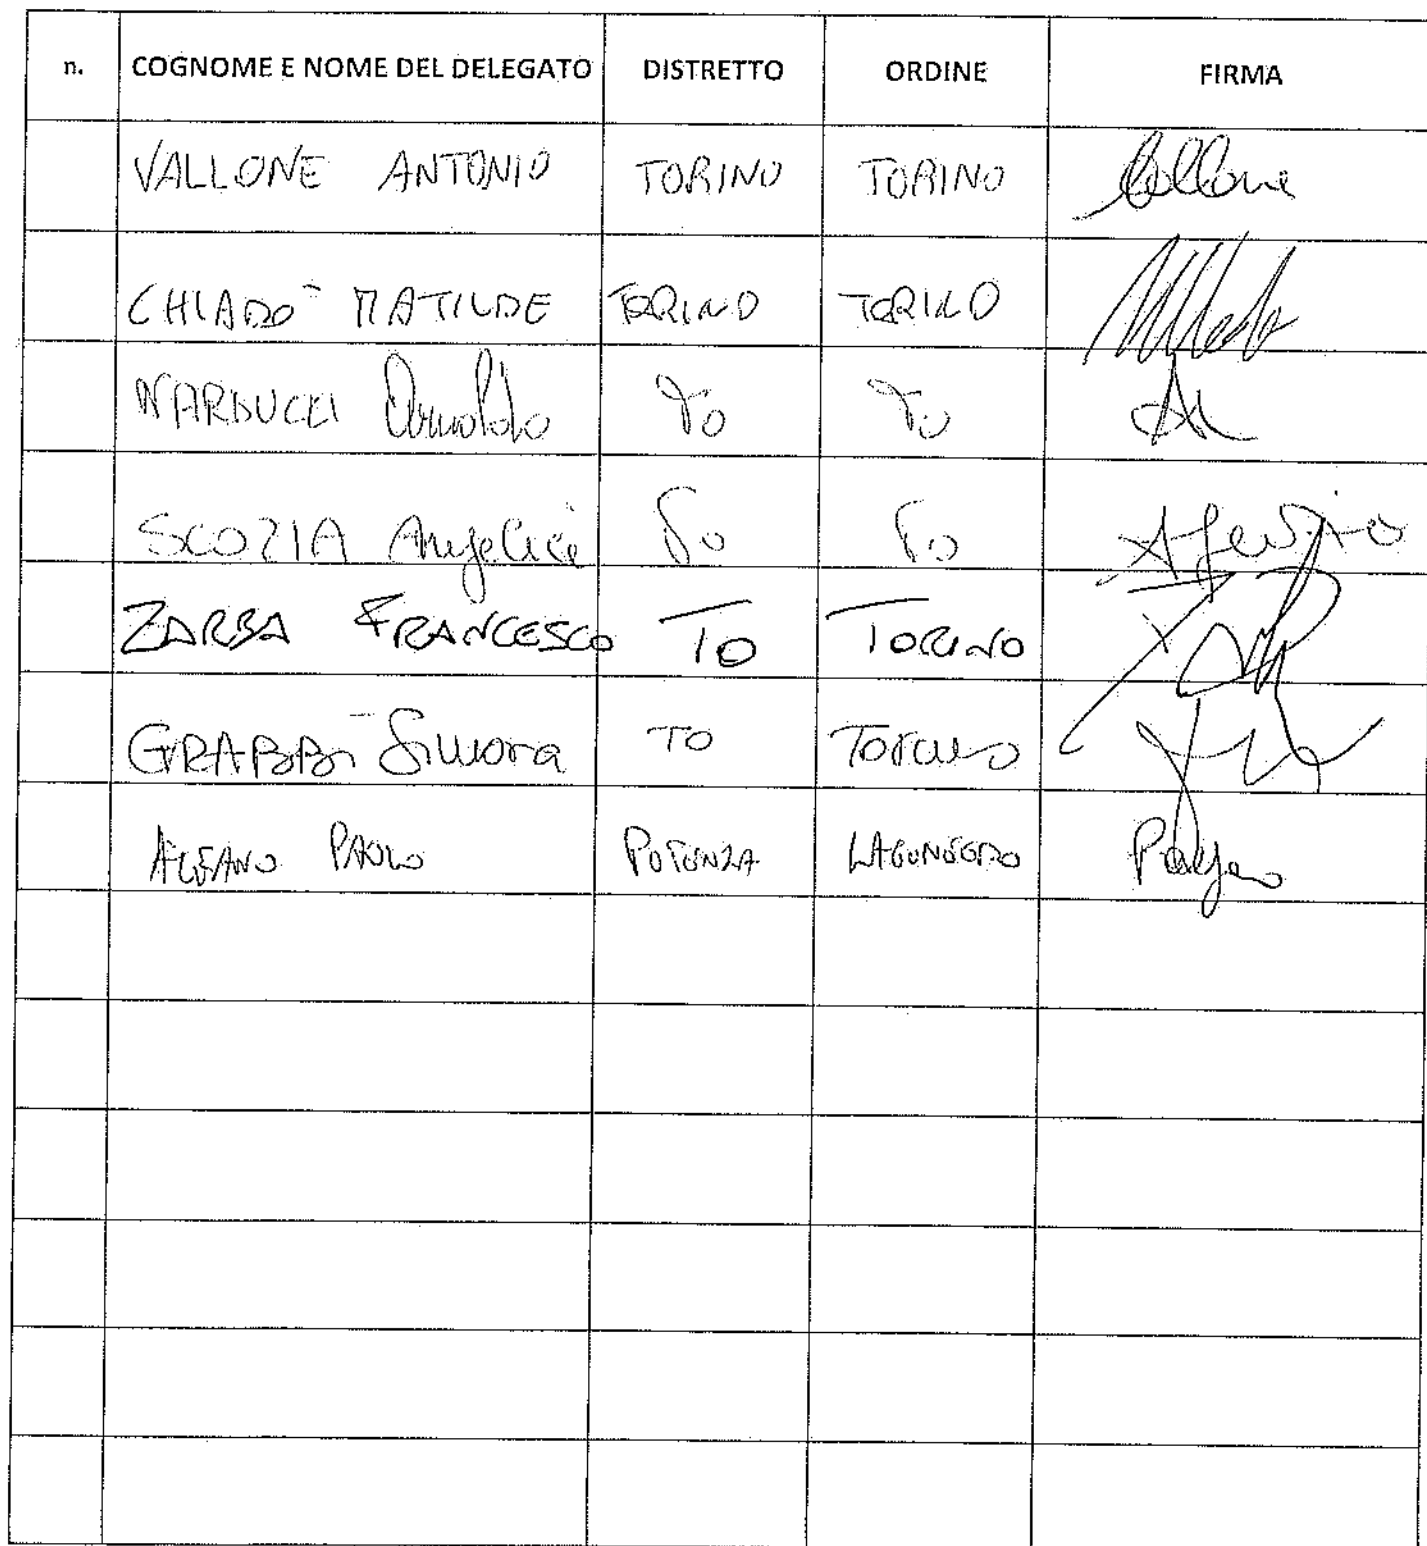 n. COGNOME E NOME DEL DELEGATO DISTRETTO ORDINE FIRMA
VALLONE ANTONIO TORINO TORINO Vallone
CHIADO' MATILDE TORINO TORINO
NARDUCCI Arnaldo To To
SCOZIA Angelica To To
ZARBA FRANCESCO TO TORINO
GRABBI Simona TO Torino
ALFANO PAOLO POTENZA LAGONEGRO